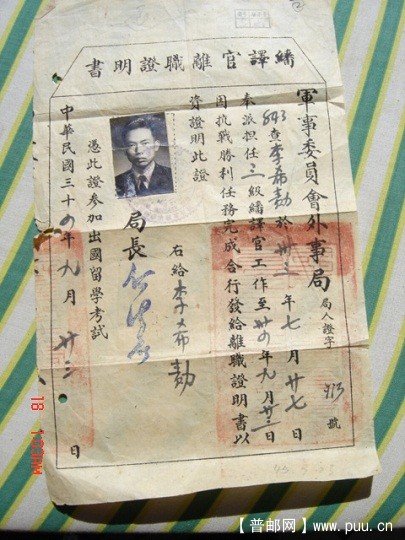 繙譯官離職證明書
軍事委員會外事局 局人證字 913 號
查李希 於卅三年七月廿七日
奉派担任三級繙譯官工作至卅四年九月廿三日
因抗戰勝利任務完成合行發給離職證明書以
資證明此證
右給李希
局長 何浩若
憑此證參加出國留學考試
中華民國三十四年九月廿三日
【普邮网】www.puu.cn